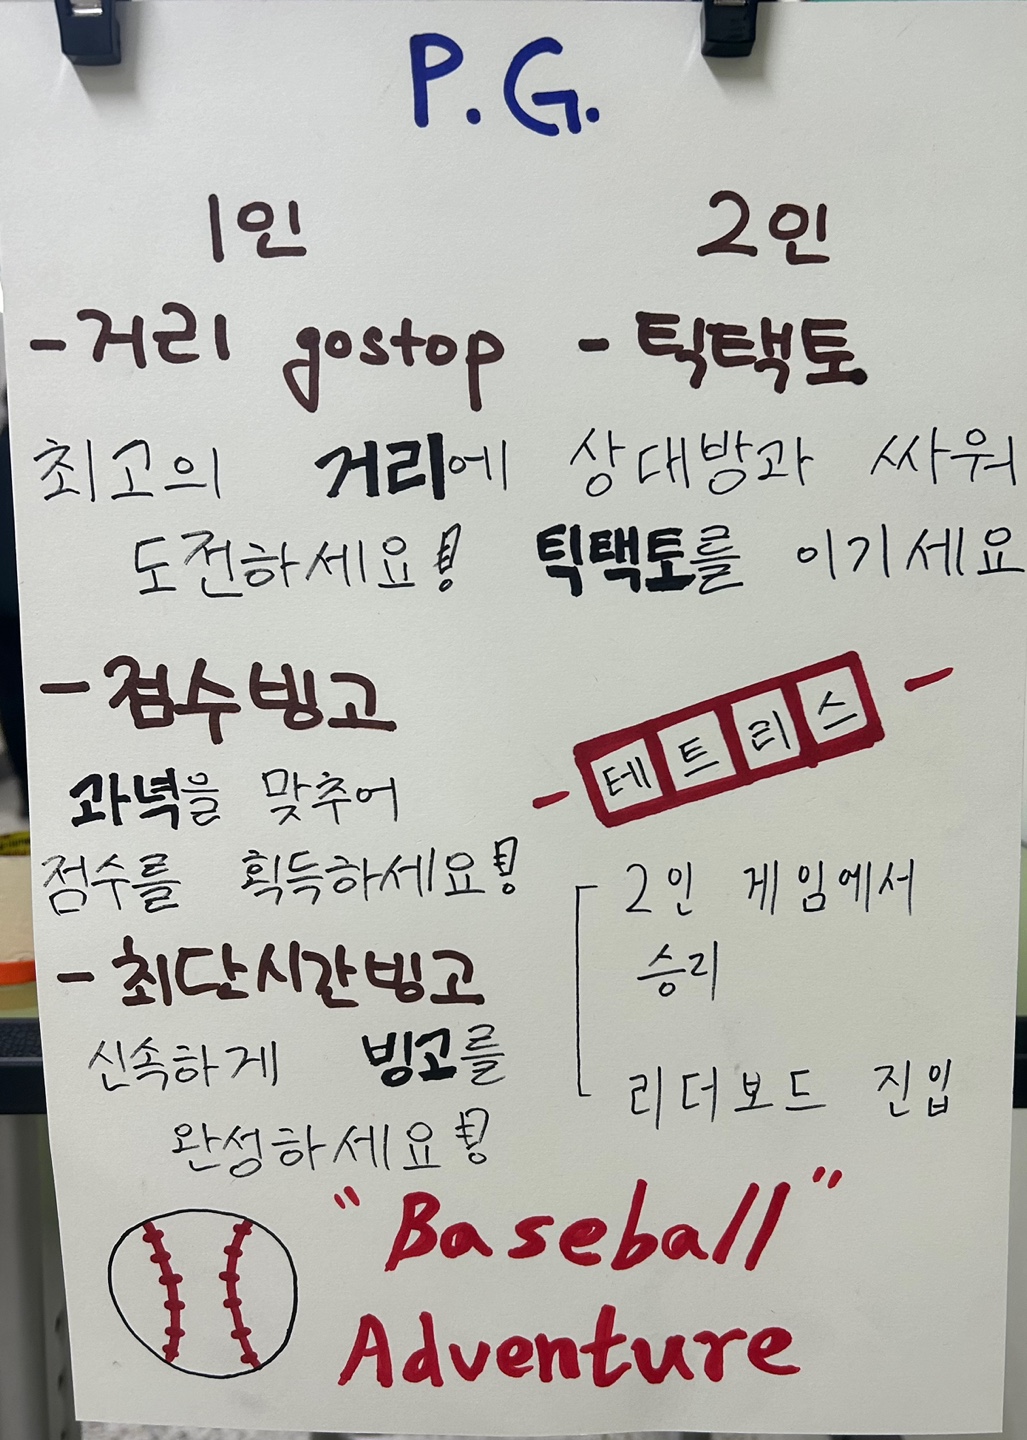 P.G.
1인
- 거리 gostop
최고의 거리에
도전하세요!
- 점수빙고
과녁을 맞추어
점수를 획득하세요!
- 최단시간빙고
신속하게 빙고를
완성하세요!
2인
- 틱택토
상대방과 싸워
틱택토를 이기세요
- 테트리스 -
2인 게임에서
승리
리더보드 진입
"Baseball"
Adventure